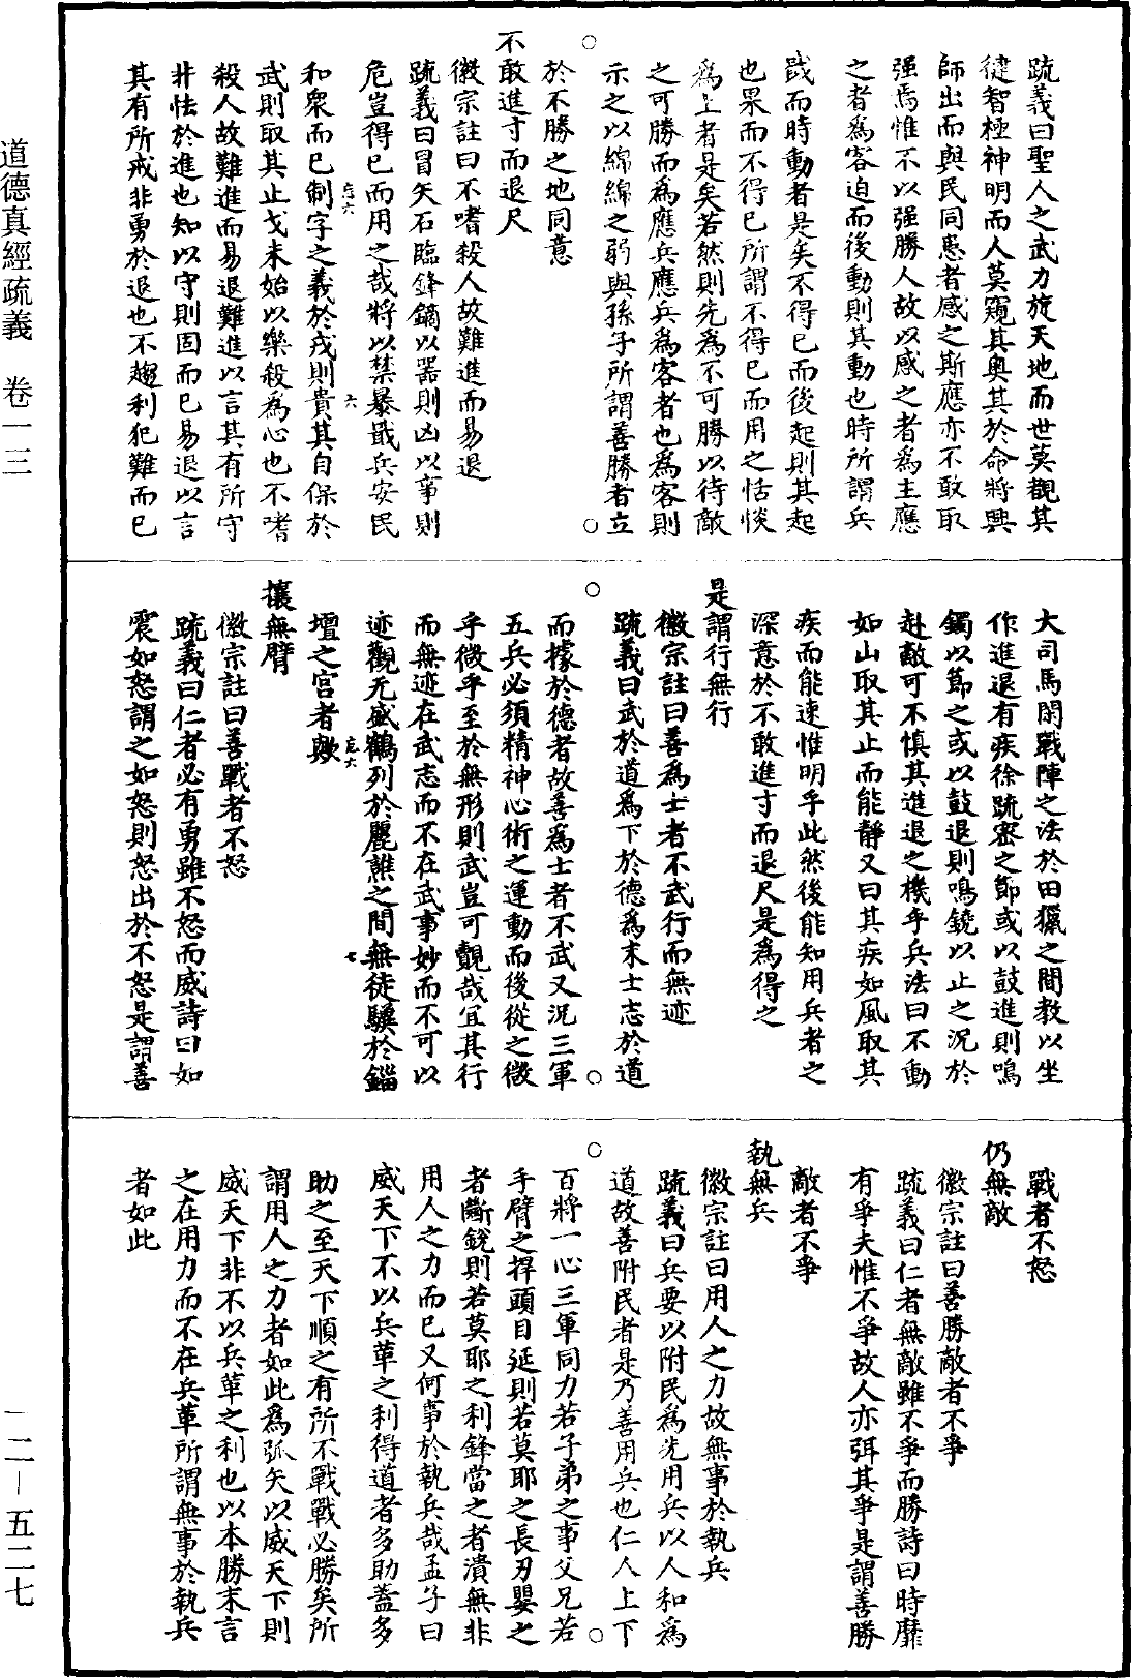 疏義曰聖人之武力旋天地而世莫覩其
徤智極神明而人莫窺其奥其於命將興
師出而與民同患者感之斯應亦不敢取
强焉惟不以强勝人故以感之者爲主應
之者爲客迫而後動則其動也時所謂兵
戢而時動者是矣不得已而後起則其起
也果而不得已所謂不得已而用之恬惔
爲上者是矣若然則先爲不可勝以待敵
之可勝而爲應兵應兵爲客者也爲客則
示之以綿綿之弱與孫子所謂善勝者立
於不勝之地同意
不敢進寸而退尺
徽宗註曰不嗜殺人故難進而易退
疏義曰冒矢石臨鋒鏑以器則凶以事則
危豈得已而用之哉將以禁暴戢兵安民
和衆而已制字之義於戎則貴其自保於
武則取其止戈未始以樂殺為心也不嗜
殺人故難進而易退難進以言其有所守
非怯於進也知以守則固而已易退以言
其有所戒非勇於退也不趨利犯難而已
大司馬閑戰陣之法於田獵之間教以坐
作進退有疾徐疏密之節或以鼓進則鳴
鐲以節之或以鼓退則鳴鐃以止之況於
赴敵可不慎其進退之機乎兵法曰不動
如山取其止而能靜又曰其疾如風取其
疾而能速惟明乎此然後能知用兵者之
深意於不敢進寸而退尺是爲得之
是謂行無行
徽宗註曰善爲士者不武行而無迹
疏義曰武於道爲下於德爲末士志於道
而據於德者故善爲士者不武又況三軍
五兵必須精神心術之運動而後從之微
乎微乎至於無形則武豈可覿哉宜其行
而無迹在武志而不在武事妙而不可以
迹觀无盛鶴列於麗譙之間無徒驥於錙
壇之宮者歟
攘無臂
徽宗註曰善戰者不怒
疏義曰仁者必有勇雖不怒而威詩曰如
震如怒謂之如怒則怒出於不怒是謂善
戰者不怒
仍無敵
徽宗註曰善勝敵者不爭
疏義曰仁者無敵雖不爭而勝詩曰時靡
有爭夫惟不爭故人亦弭其爭是謂善勝
敵者不爭
執無兵
徽宗註曰用人之力故無事於執兵
疏義曰兵要以附民爲先用兵以人和爲
道故善附民者是乃善用兵也仁人上下
百將一心三軍同力若子弟之事父兄若
手臂之捍頭目延則若莫耶之長刃嬰之
者斷銳則若莫耶之利鋒當之者潰無非
用人之力而已又何事於執兵哉孟子曰
威天下不以兵革之利得道者多助蓋多
助之至天下順之有所不戰戰必勝矣所
謂用人之力者如此爲弧矢以威天下則
威天下非不以兵革之利也以本勝末言
之在用力而不在兵革所謂無事於執兵
者如此
道德真經疏義　卷一三
一二—五二七